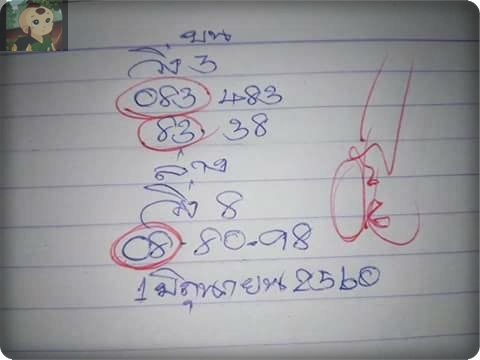 บน
วิ่ง 3
083 483
83. 38
ล่าง
วิ่ง 8
08-80-98
1 มิถุนายน 2560